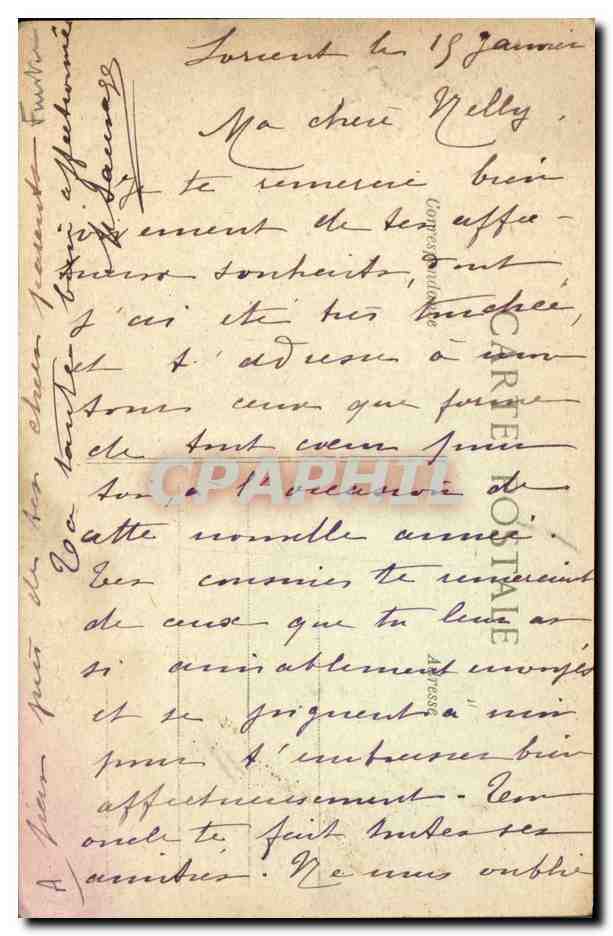 Lorient le 15 Janvier
Ma chère Nelly,
Je te remercie bien
vivement de tes affec-
tueux souhaits, dont
j'ai été très touchée,
et t'adresse à mon
tour ceux que forme
de tout coeur pour
toi, à l'occasion de
cette nouvelle année.
Tes cousines te remercient
de ceux que tu leur as
si aimablement envoyés
et se joignent à moi
pour t'embrasser bien
affectueusement. Ton
oncle te fait toutes ses
amitiés. Ne nous oublie
pas près de tes chers parents
Ta tante bien affectionnée
M. Sauvage
Correspondance
CARTE POSTALE
Adresse
CPAPHIL